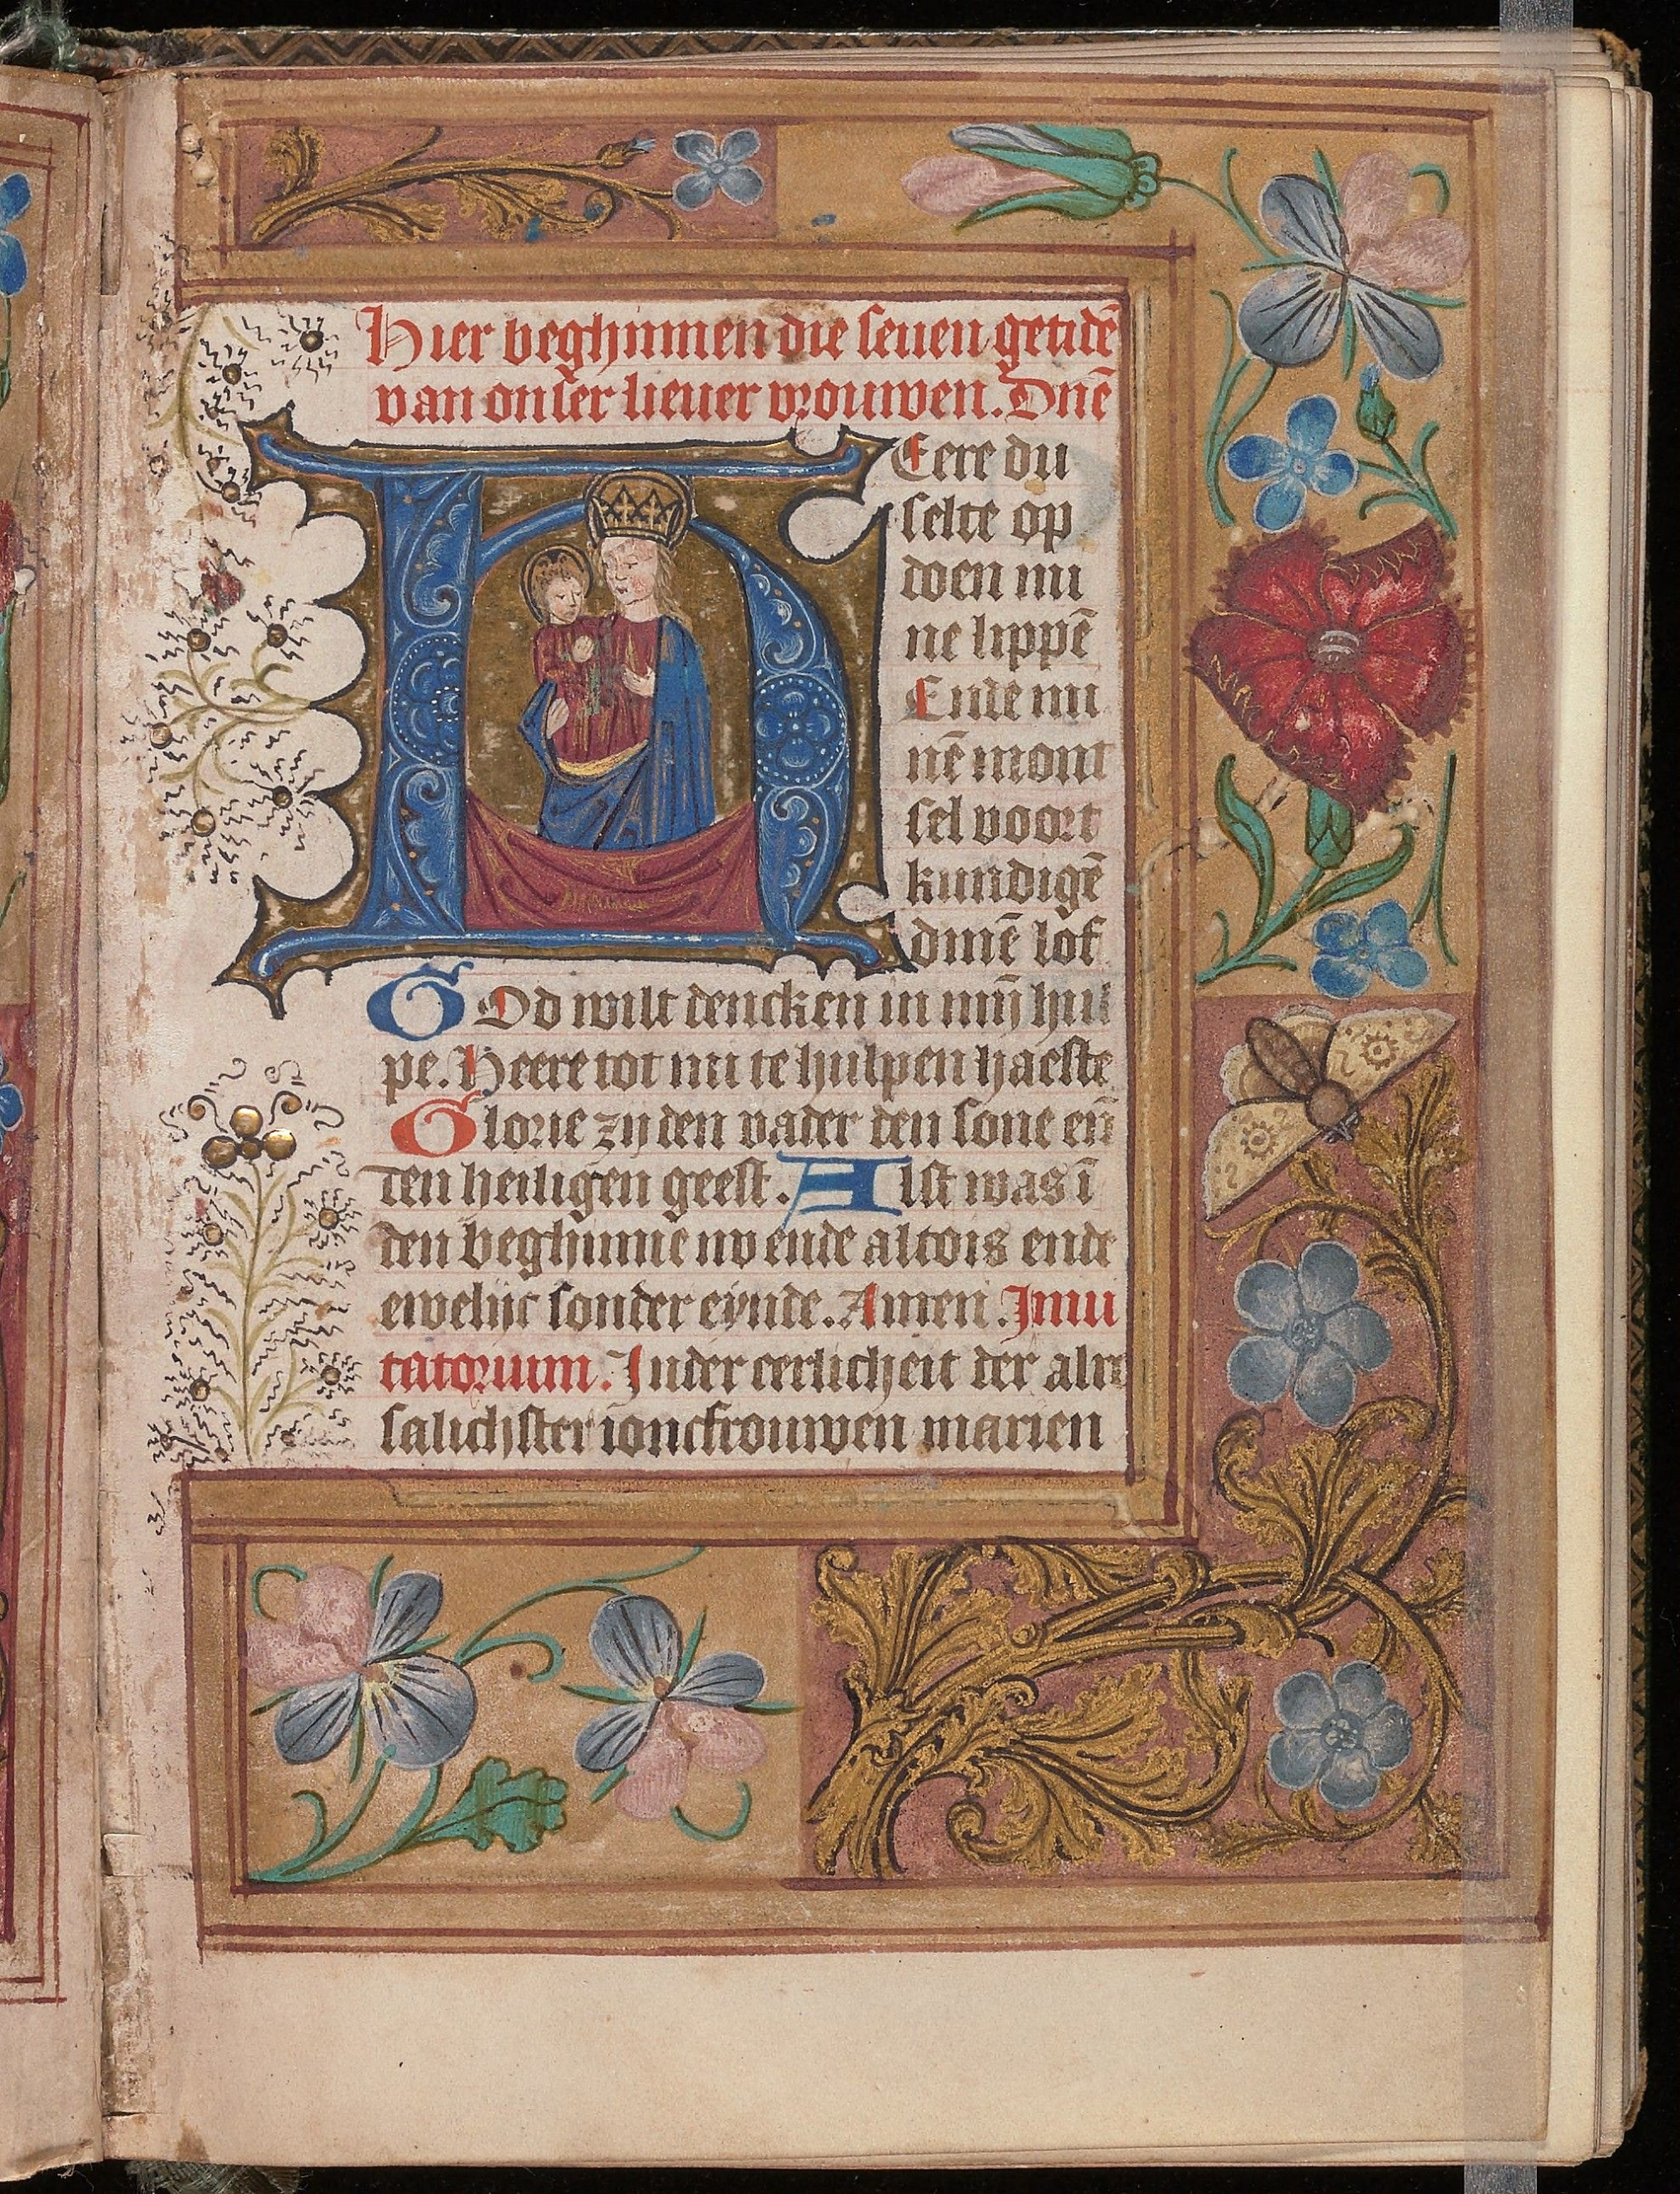 Hier beghinnen die seuen getidē
van onser lieuer vrouwen. Dnē
HEere du
selte op
doen mi
ne lippē
Ende mi
nē mont
sel voort
kundigē
dinē lof
GOd wilt dencken in mijn hul
pe. Heere tot mi te hulpen haeste
Glorie zy den vader den sone eñ
den heiligen geest. Alst was ī
den beghinne nv ende altois ende
ewelijc sonder eynde. Amen. Inui
tatorium. In der eerlicheit der alre
salichster ioncfrouwen marien